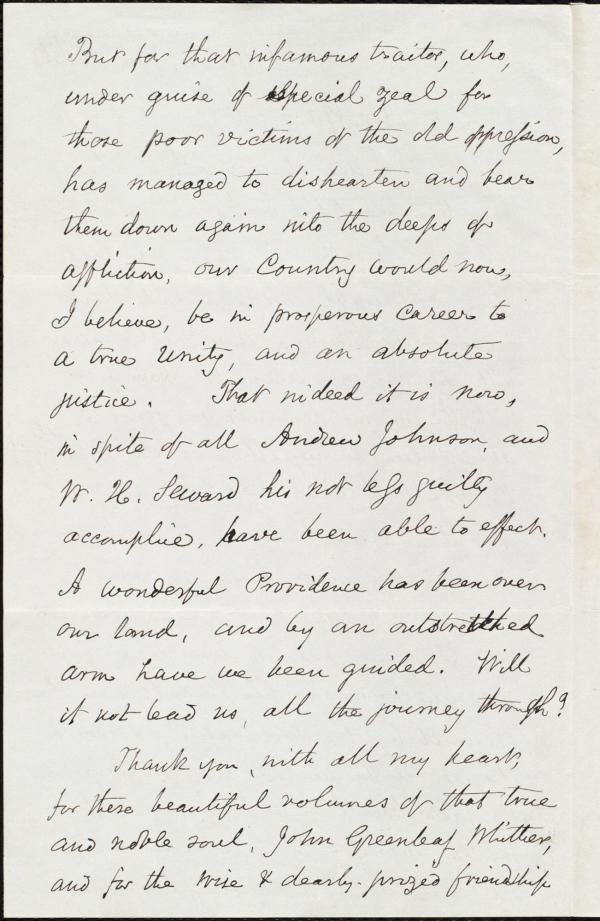 But for that infamous traitor, who,
under guise of special zeal for
those poor victims of the old oppression,
has managed to dishearten and bear
them down again into the deeps of
affliction, our Country would now,
I believe, be in prosperous career to
a true Unity, and an absolute
justice. That indeed it is now,
in spite of all Andrew Johnson, and
W. H. Seward his not less guilty
accomplice, have been able to effect.
A wonderful Providence has been over
our land, and by an outstretched
arm have we been guided. Will
it not lead us, all the journey through?
Thank you, with all my heart,
for these beautiful volumes of that true
and noble soul, John Greenleaf Whittier,
and for the wise & dearly-prized friendship